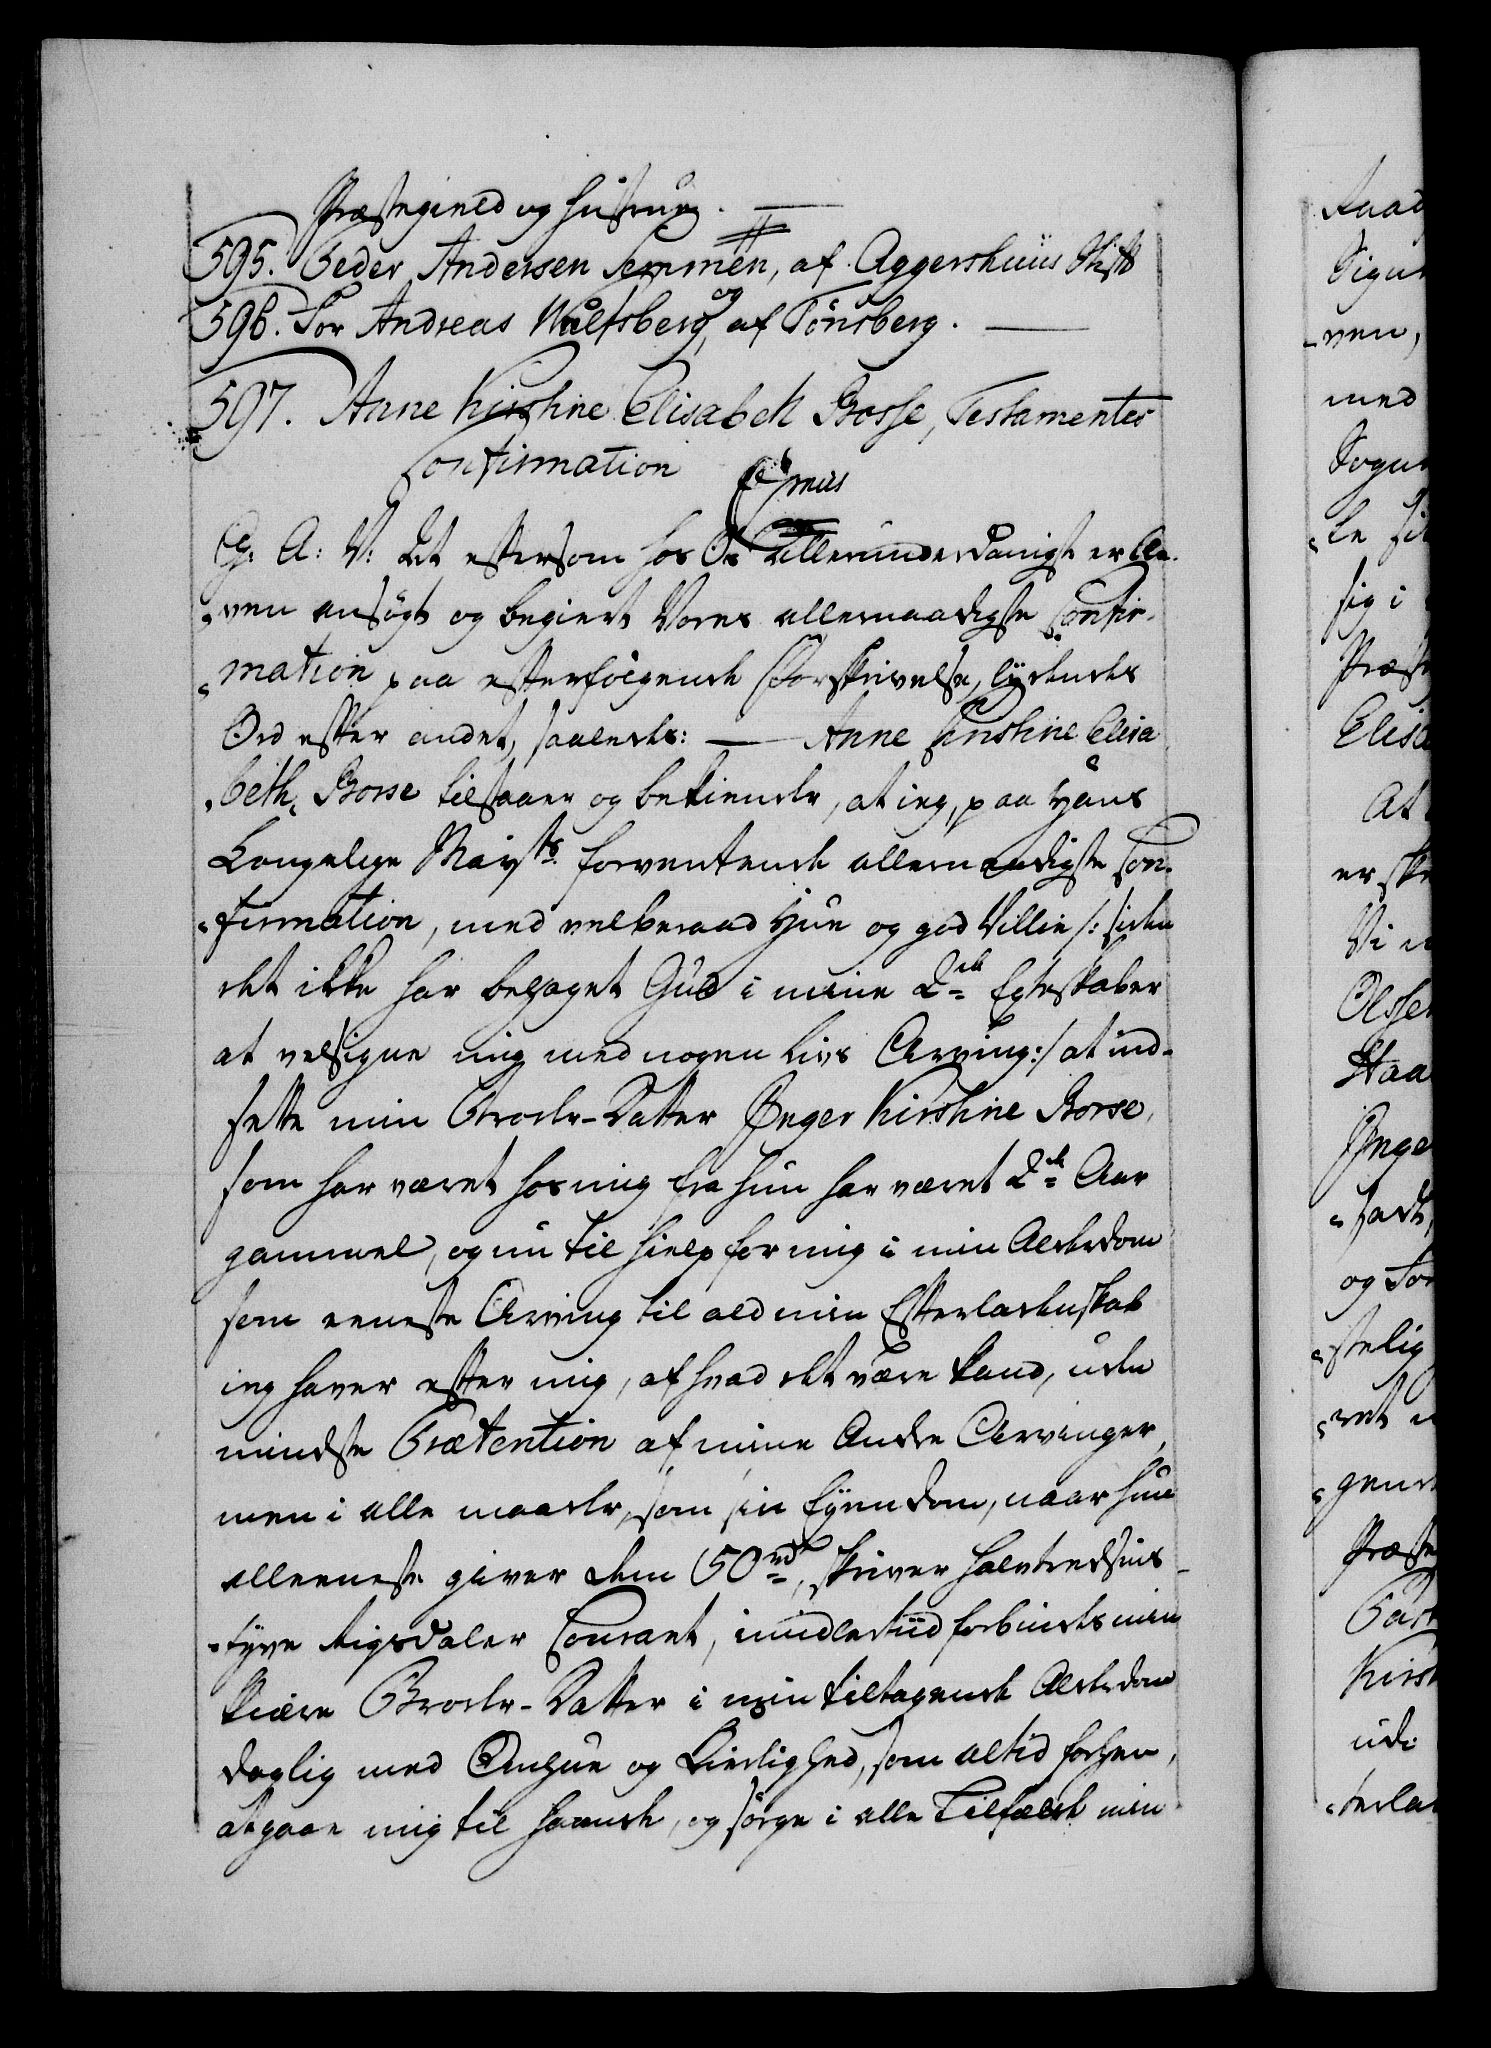 Præstegield og hustrue.
595. Peder Andersen Semmen, af Aggershuus Stift
og
596. For Andreas Wulfsberg, af Tönsberg.
597. Anne Kirstine Elisabeth Borse, Testamentes
Confirmation
G: A: V: at eftersom hos Os allerunderdanigst er ble-
ven ansögt og begiert Vores allernaadigste Confir-
mation paa efterfölgende Forskrivelse, lydendes
Ord efter andet, saaledes: — Anne Kirstine Elisa
beth Borse tilstaaer og bekiender, at ieg, paa Hans
Kongelige Mayts forventende allernaadigste Con-
firmation, med velberaad Hue og god Villie /: siden
det ikke har behaget Gud i mine 2de Egteskaber
at velsigne mig med nogen Livs Arving :/ at ind-
sette min Broder-Datter Inger Kirstine Borse,
som har været hos mig fra hun har været 2de Aar
gammel, og nu til hielp for mig i min Alderdom
som eeneste Arving til ald min Efterladenskab
ieg haver efter mig, af hvad det være kand, uden
mindste Prætention af mine Andre Arvinger,
men i alle maader, som sin Eyendom, naar hun
alleeneste giver dem 50 rd, skriver halvtredsins-
tyve Rigsdaler Courant, imidlertiid forbindes min
kiære Broder-Datter i min tiltagende Alderdom
daglig med Omhue og Kierlighed, som altid forhen,
at gaae mig til haande, og sörge i alle Tilfælde min